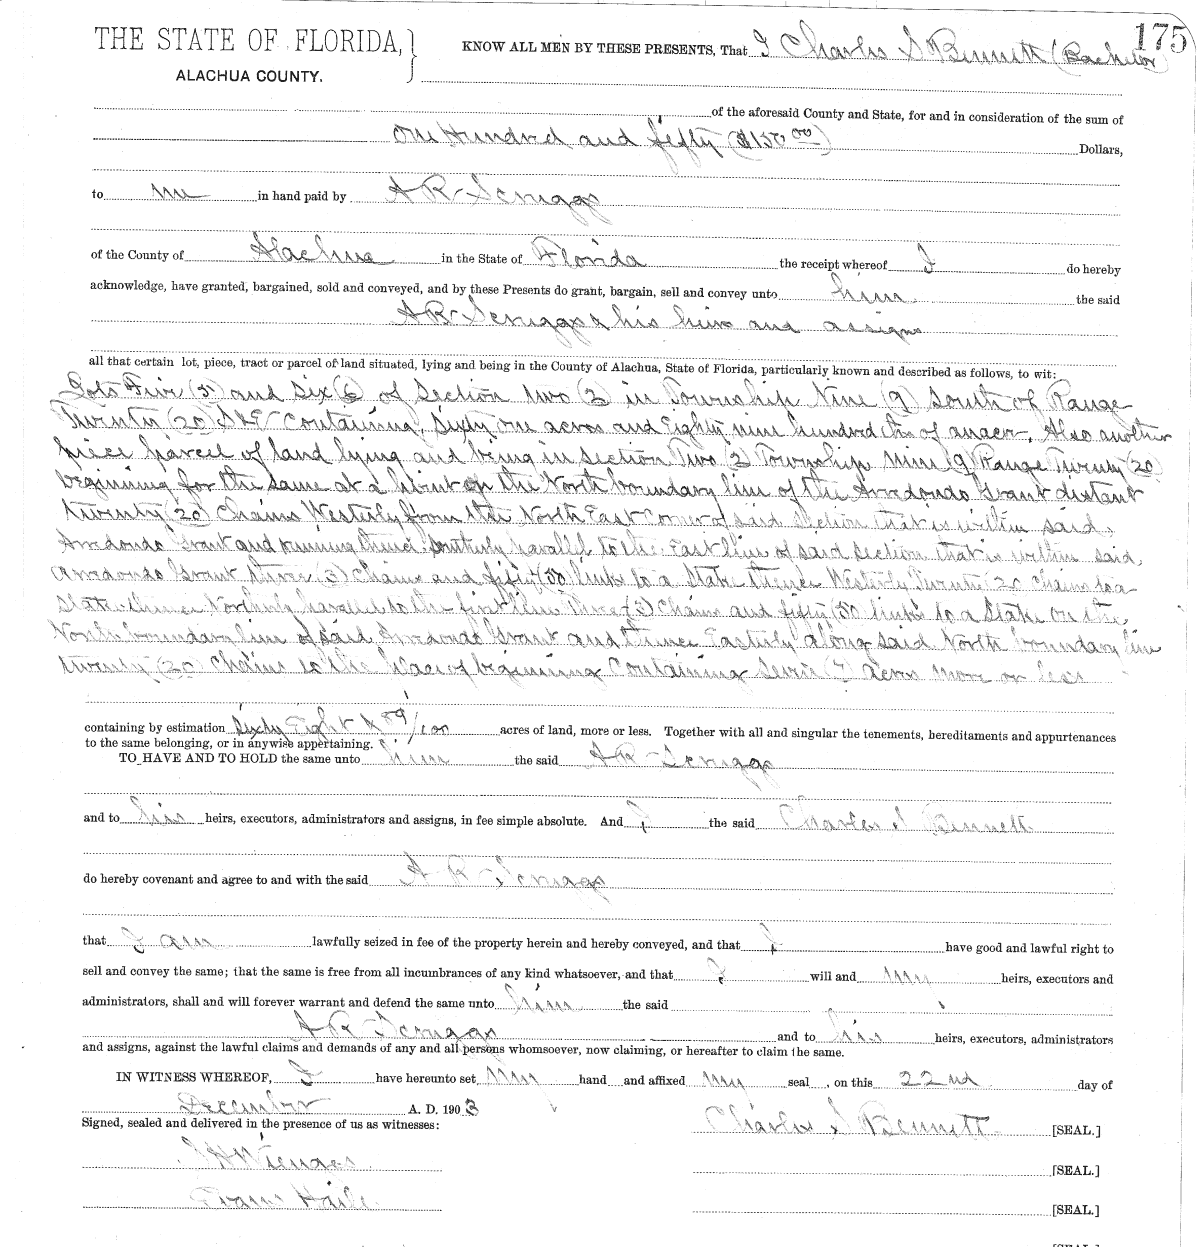 175
THE STATE OF FLORIDA,
ALACHUA COUNTY.
KNOW ALL MEN BY THESE PRESENTS, That I Charles S Bennett (Bachelor)
of the aforesaid County and State, for and in consideration of the sum of
One Hundred and fifty ($150 00) Dollars,
to me in hand paid by A R Scruggs
of the County of Alachua in the State of Florida the receipt whereof I do hereby
acknowledge, have granted, bargained, sold and conveyed, and by these Presents do grant, bargain, sell and convey unto him the said
A R Scruggs & his heirs and assigns
all that certain lot, piece, tract or parcel of land situated, lying and being in the County of Alachua, State of Florida, particularly known and described as follows, to wit:
Lots Five (5) and Six (6) of Section two (2) in Township Nine (9) South of Range
Twenty (20) S & E Containing Sixty one acres and Eighty nine hundredths of an acer. Also another
piece parcel of land lying and being in Section Two (2) Township nine (9) Range Twenty (20)
beginning for the same at a point on the North boundary line of the Arredondo Grant distant
twenty (20) chains Westerly from the North East Corner of said Section that is within said
Arredondo Grant and running thence Southerly parallel to the East line of said Section that is within said
Arredondo Grant three (3) chains and fifty (50 links to a Stake thence Westerly Twenty (20 chains to a
Stake thence Northerly parallel to the first line Three (3) Chains and fifty (50 links to a Stake on the
North boundary line of said Arredondo Grant and thence Easterly along said North boundary line
twenty (20) chains to the place of beginning Containing Seven (7) acres more or less
containing by estimation Sixty Eight & 89/100 acres of land, more or less. Together with all and singular the tenements, hereditaments and appurtenances
to the same belonging, or in anywise appertaining.
TO HAVE AND TO HOLD the same unto him the said A R Scruggs
and to his heirs, executors, administrators and assigns, in fee simple absolute. And I the said Charles S Bennett
do hereby covenant and agree to and with the said A R Scruggs
that I am lawfully seized in fee of the property herein and hereby conveyed, and that I have good and lawful right to
sell and convey the same; that the same is free from all incumbrances of any kind whatsoever, and that I will and my heirs, executors and
administrators, shall and will forever warrant and defend the same unto him the said
A R Scruggs and to his heirs, executors, administrators
and assigns, against the lawful claims and demands of any and all persons whomsoever, now claiming, or hereafter to claim the same.
IN WITNESS WHEREOF, I have hereunto set my hand and affixed my seal, on this 22nd day of
December A. D. 1903
Signed, sealed and delivered in the presence of us as witnesses:
Charles S Bennett [SEAL.]
[SEAL.]
Evans Haile
[SEAL.]